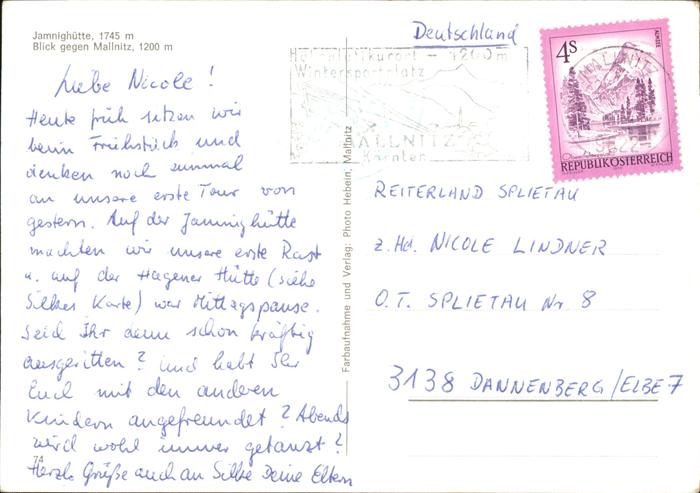 Jamnighütte, 1745 m
Blick gegen Mallnitz, 1200 m
Liebe Nicole!
Heute früh sitzen wir
beim Frühstück und
denken noch einmal
an unsere erste Tour von
gestern. Auf der Jamnighütte
machten wir unsere erste Rast
u. auf der Hagener Hütte (siehe
Silkes Karte) war Mittagspause.
Seid Ihr denn schon kräftig
ausgeritten? und habt Ihr
Euch mit den anderen
Kindern angefreundet? Abends
wird wohl immer getanzt?
74
Herzl. Grüße auch an Silke Deine Eltern
Farbaufnahme und Verlag: Photo Hebein, Mallnitz
Deutschland
Höhenluftkurort - 1200 m
Wintersportplatz
MALLNITZ
Kärnten
MALLNITZ
9822
4S
ALMSEE
REPUBLIK ÖSTERREICH
REITERLAND SPLIETAU
z. Hd. NICOLE LINDNER
O.T. SPLIETAU Nr. 8
3138 DANNENBERG/ELBE 7